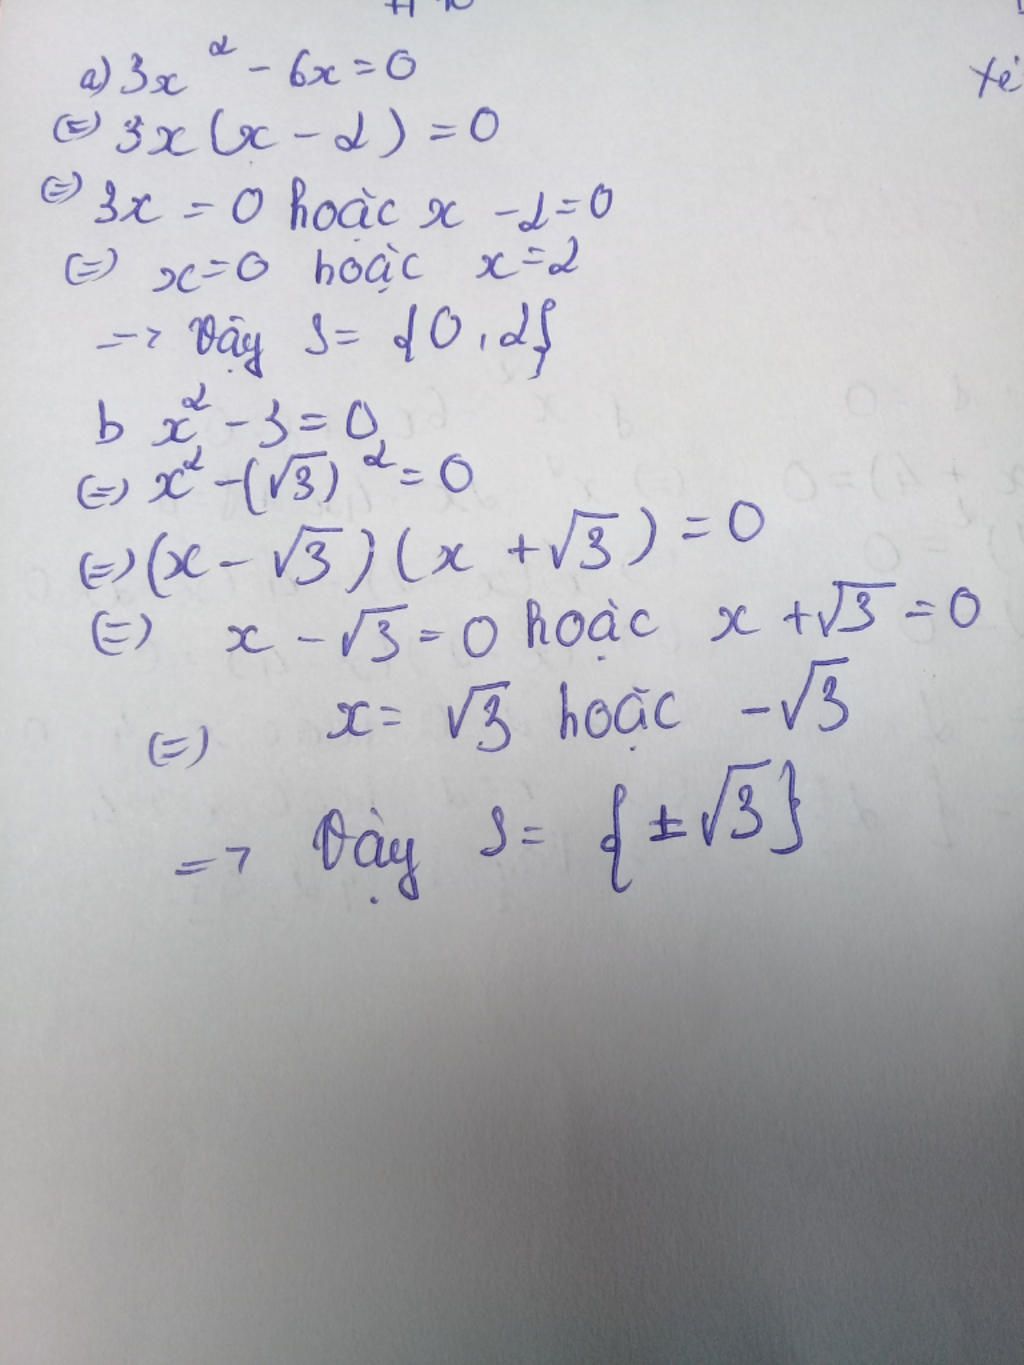 a) 3x² - 6x = 0
(=) 3x (x - 2) = 0
(=) 3x = 0 hoặc x - 2 = 0
(=) x = 0 hoặc x = 2
=> Vậy S = {0, 2}
b x² - 3 = 0
(=) x² - (√3)² = 0
(=) (x - √3) (x + √3) = 0
(=) x - √3 = 0 hoặc x + √3 = 0
(=) x = √3 hoặc -√3
=> Vậy S = {±√3}